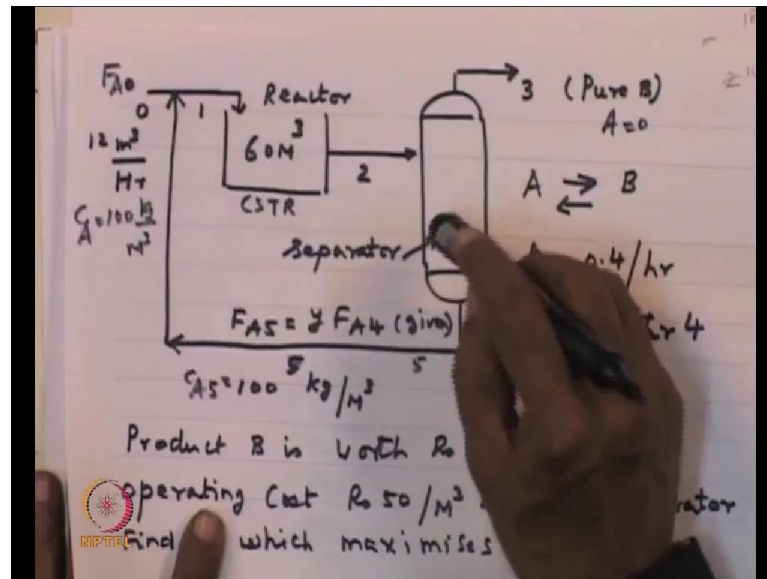 FA0
0
1
Reactor
3 (Pure B)
A=0
12 m³/Hr
60M³
2
A ⇌ B
CA=100 kg/M³
CSTR
separator
0.4/hr
FA5 = y FA4 (given)
4
5
CA5=100 kg/M³
Product B is worth Rs
operating Cost Rs 50/M³
Find which maximises
NPTEL